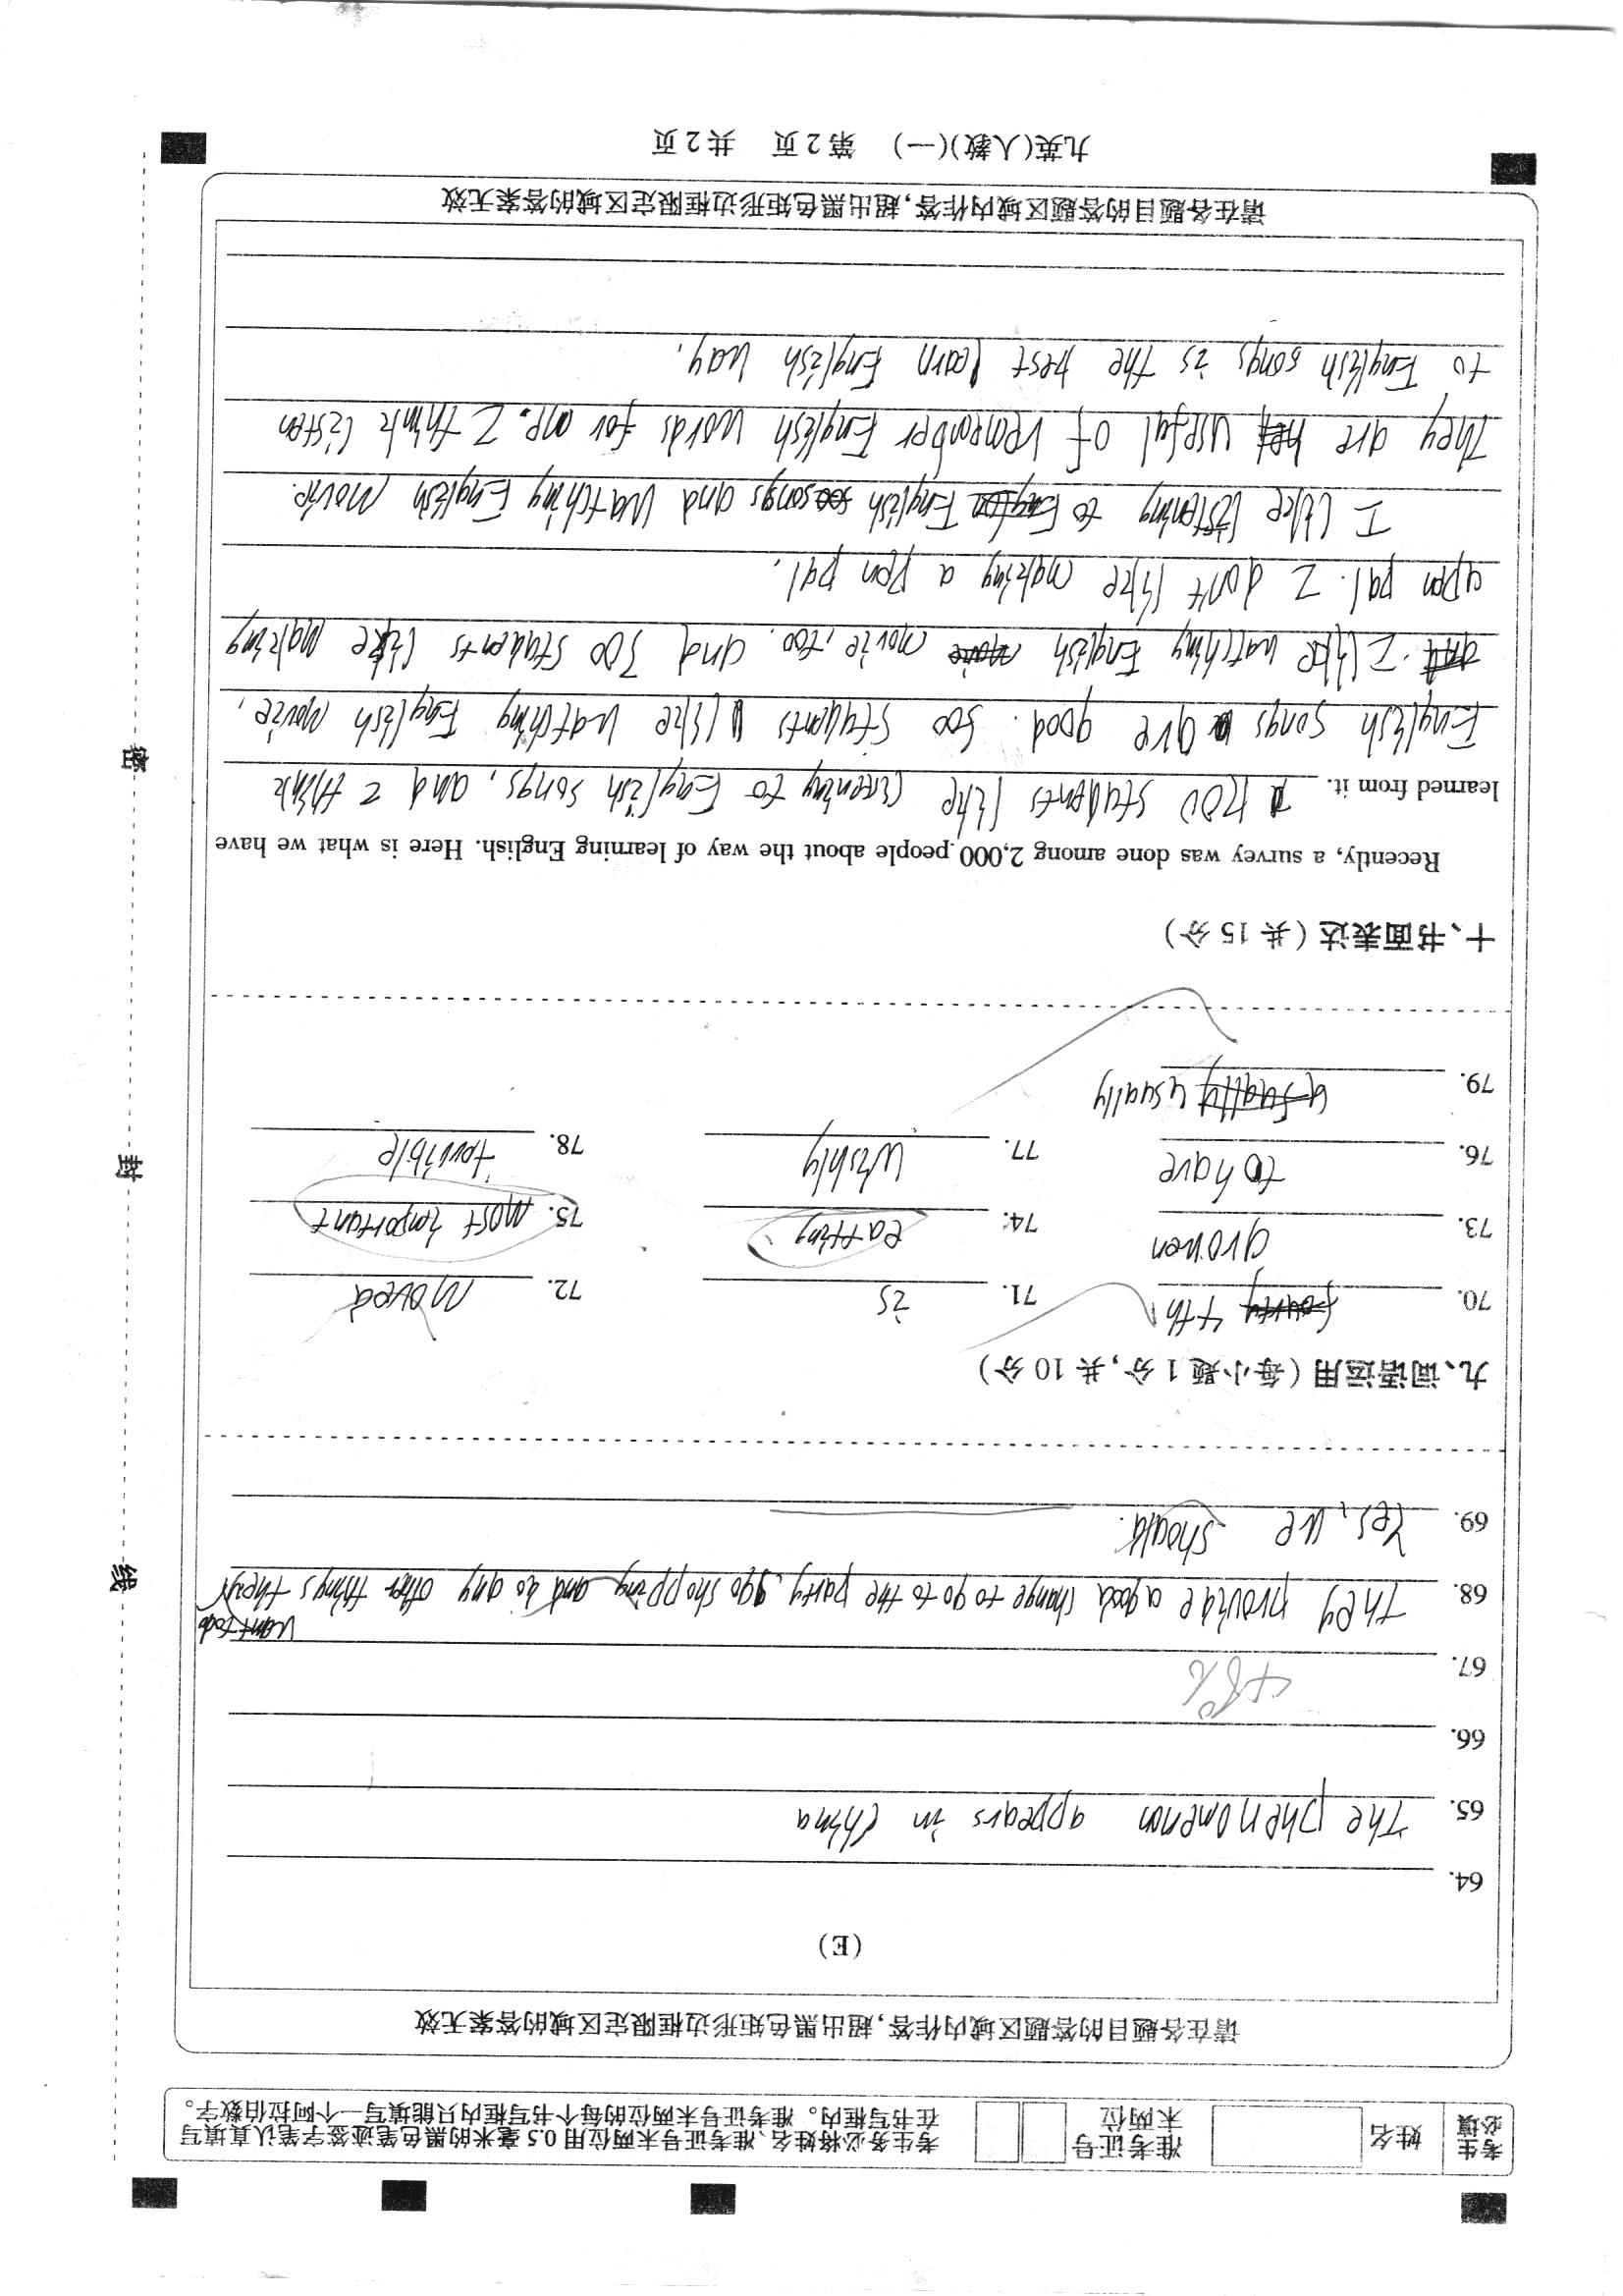 考生必填 姓名 准考证号末两位 考生务必将姓名、准考证号末两位用0.5毫米的黑色笔迹签字笔认真填写在书写框内。准考证号末两位的每个书写框内只能填写一个阿拉伯数字。
请在各题目的答题区域内作答,超出黑色矩形边框限定区域的答案无效
(E)
64.
65. The phenomenon appears in China
66.
67. 48%
68. They provide a good change to go to the party, go shopping and do any other things they
want to do
69. Yes, we should.
九、词语运用(每小题1分,共10分)
70. 4th 71. is 72. moved
73. grown 74. eatting 75. most important
76. to have 77. wishly 78. terrible
79. usually
十、书面表达(共15分)
Recently, a survey was done among 2,000 people about the way of learning English. Here is what we have
learned from it. 1200 students like listening to English songs, and I think
English songs are good. 500 students like watching English movie,
I like watching English movie, too. and 300 students like making
apen pal. I don't like making a pen pal.
I like listening to English songs and watching English movie.
They are useful of remember English words for me. I think listen
to English songs is the best learn English way.
请在各题目的答题区域内作答,超出黑色矩形边框限定区域的答案无效
九英(人教)(一) 第2页 共2页
密
封
线